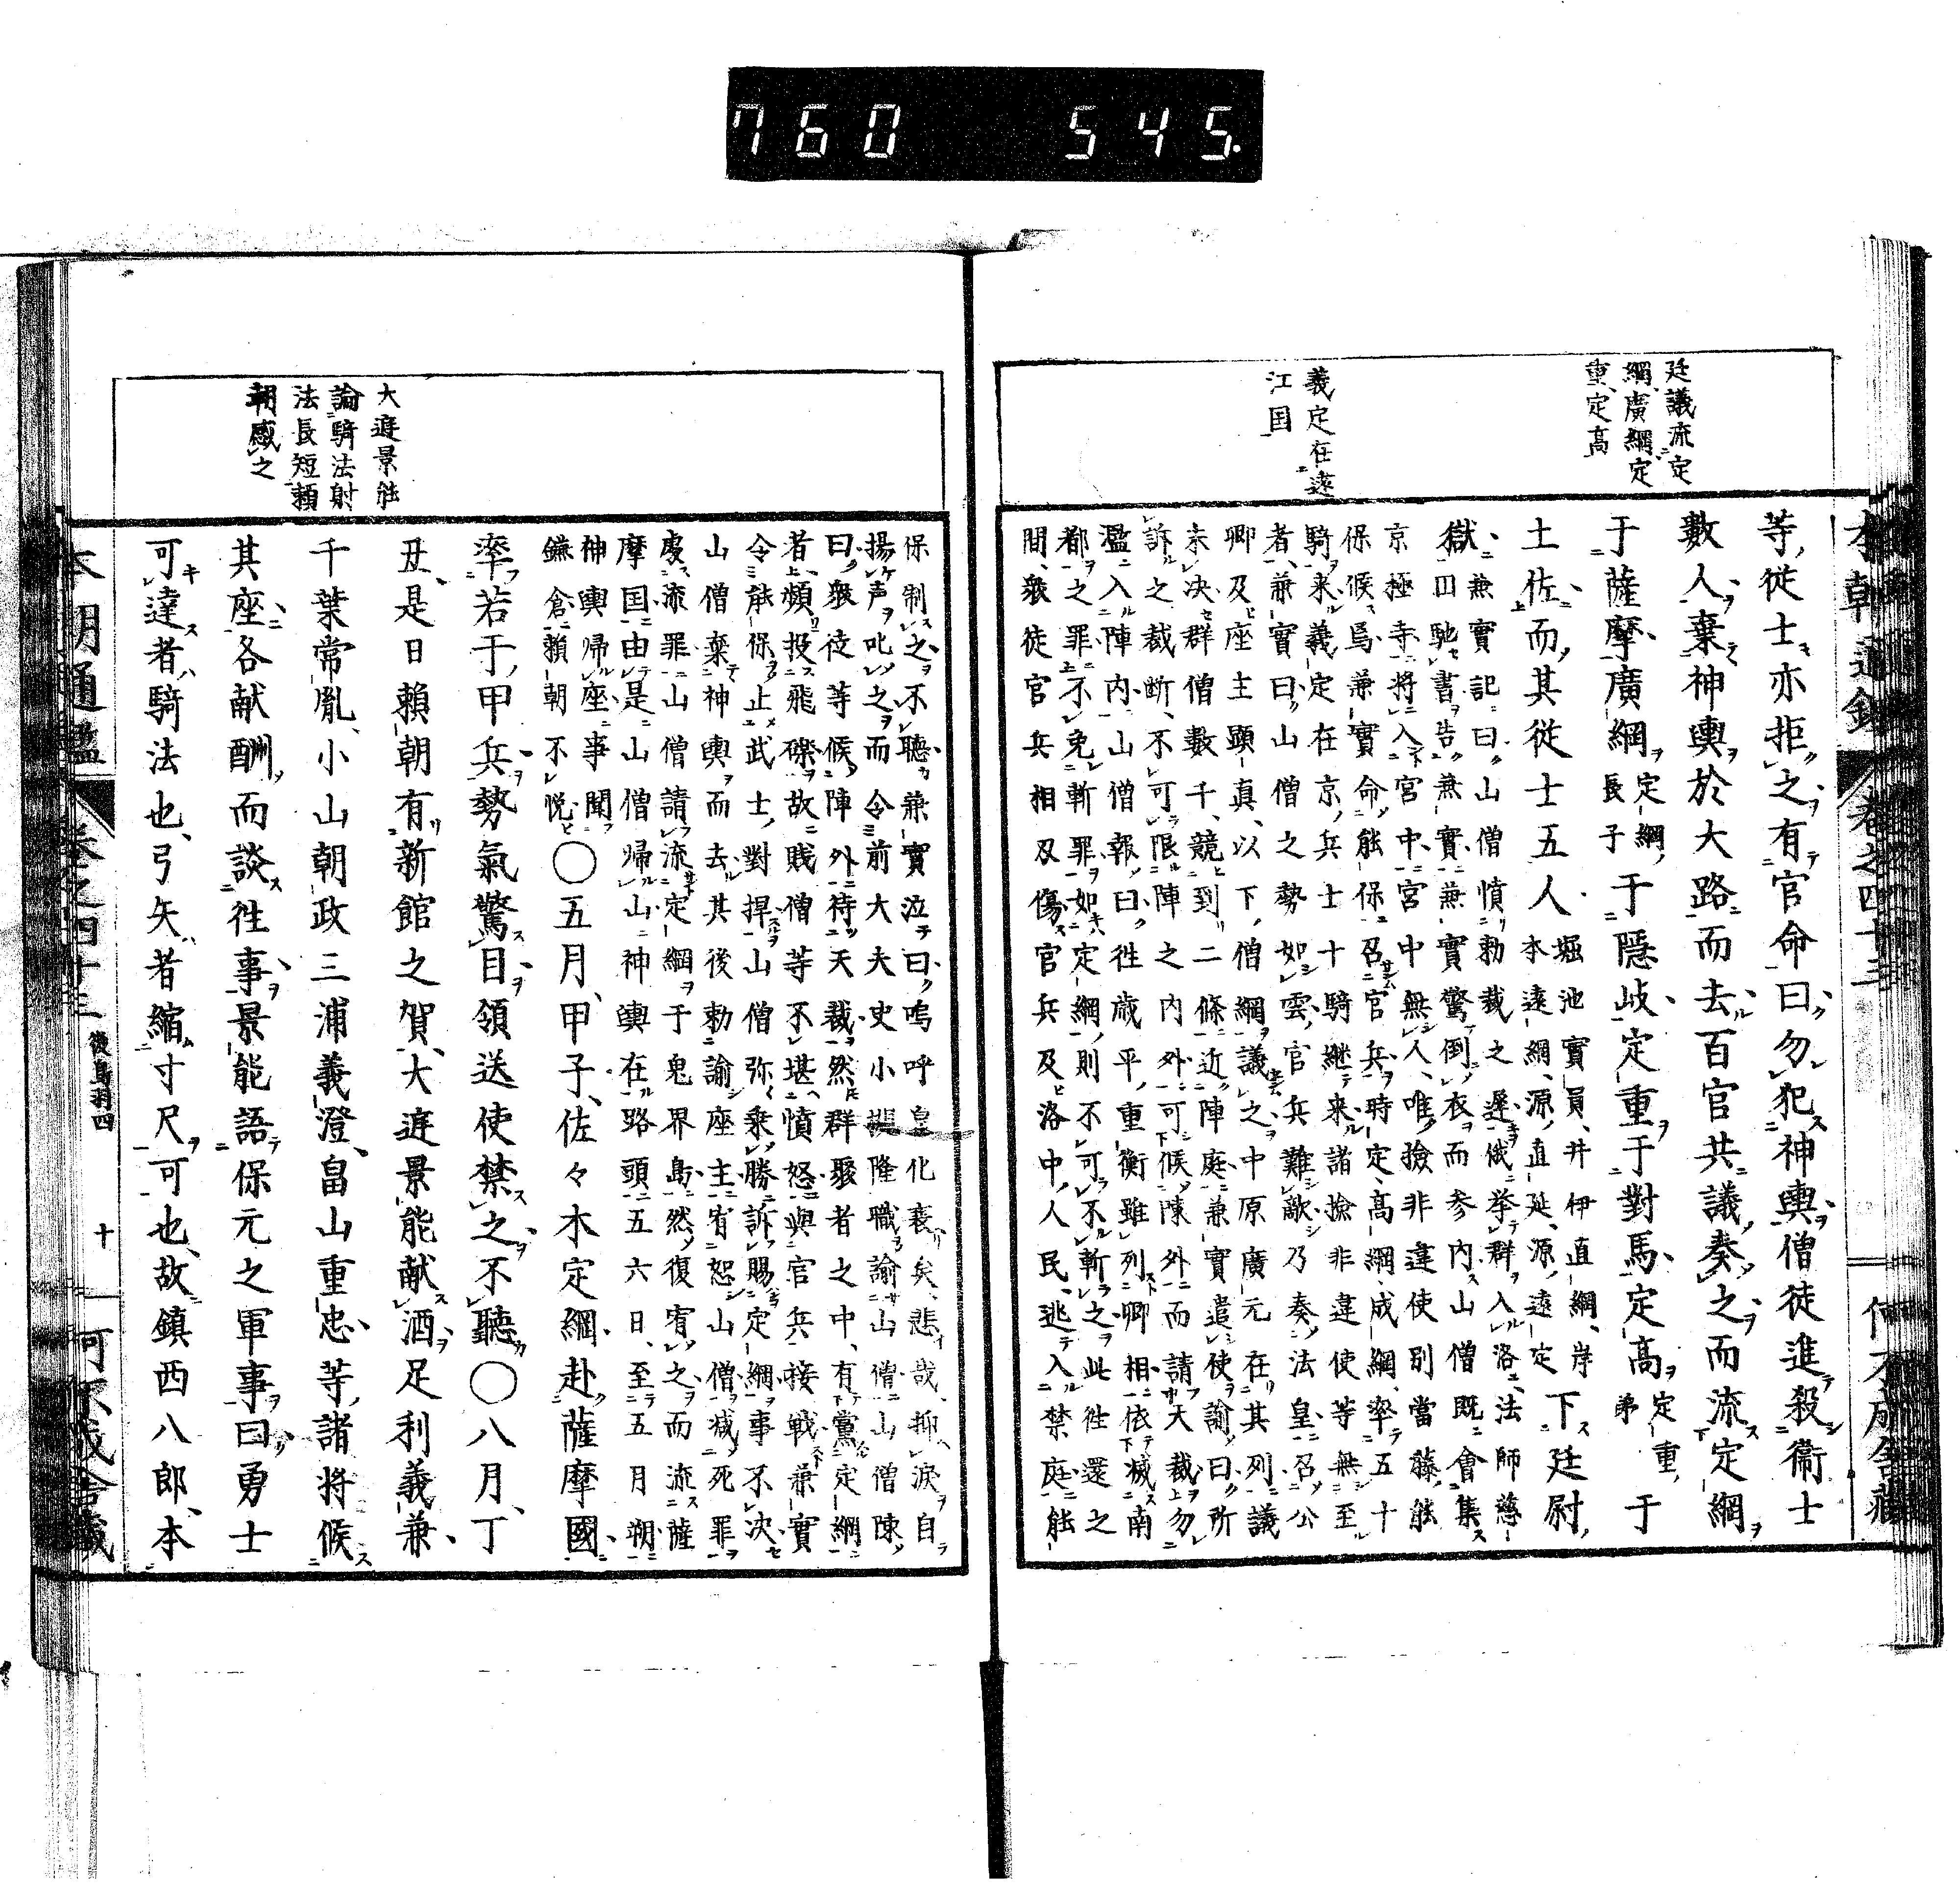 760 545.
本朝通鑑 卷之四十三
廷議流定
綱、廣綱、定
重、定高
義定在遠
江国
等、從士亦拒之、有官命曰、勿犯神輿、僧徒進殺衞士
數人、棄神輿於大路而去、百官共議、奏之而流定綱
于薩摩、廣綱定綱長子、于隱岐、定重于對馬、定高定重弟、于
土佐、而其從士五人堀池實員、井伊直綱、岸本遠綱、源直延、源遠定下廷尉、
獄、兼實記曰、山僧憤勅裁之遲、俄挙群入洛、法師慈
円馳書告兼實、兼實驚倒衣而参内、山僧既會集
京極寺、將入宮中、宮中無人、唯撿非違使別當藤能
保候焉、兼實命能保召官兵、時定、高綱、成綱、率五十
騎来、義定在京、兵士十騎継来、諸撿非違使等無至
者、兼實曰、山僧之勢如雲、官兵難敵、乃奏法皇召公
卿及座主顯真、以下、僧綱議之、中原廣元在其列、議
未决、群僧數千、競到二條、近陣庭、兼實遣使諭曰、所
訴之裁断、不可限陣之内外、可候陳外而請天裁、勿
濫入陣内、山僧報曰、徃歳平重衡雖列卿相、依滅南
都之罪、不免斬罪、如定綱、則不可不斬之、此徃還之
間、衆徒官兵相及傷、官兵及洛中人民、逃入禁庭、能
大庭景能
論騎法射
法長短頼
朝感之
保制之不聽、兼實泣曰、嗚呼皇化衰矣、悲哉、抑涙自
揚声叱之、而令前大夫史小槻隆職諭山僧、山僧陳
曰、衆徒等候陣外待天裁、然群聚者之中、有黨定綱
者、頻投飛礫、故賤僧等不堪憤怒、與官兵接戦、兼實
令能保止武士對捍、山僧弥乗勝訴賜定綱、事不决、
山僧棄神輿而去、其後勅諭座主宥恕山僧、減死罪
處流罪、山僧請流定綱于鬼界島、然復宥之而流薩
摩国、由是山僧帰山、神輿在路頭五六日、至五月朔
神輿帰座、事聞鎌倉、頼朝不悦
〇五月、甲子、佐々木定綱赴薩摩國、
率若于甲兵、勢氣驚目、領送使禁之、不聽、〇八月、丁
丑、是日頼朝有新館之賀、大庭景能献酒、足利義兼、
千葉常胤、小山朝政、三浦義澄、畠山重忠等、諸将候
其座、各献酬而談徃事、景能語保元之軍事曰、勇士
可達者、騎法也、弓矢者縮寸尺可也、故鎮西八郎、本
本朝通鑑 卷之四十三 後鳥羽四 十